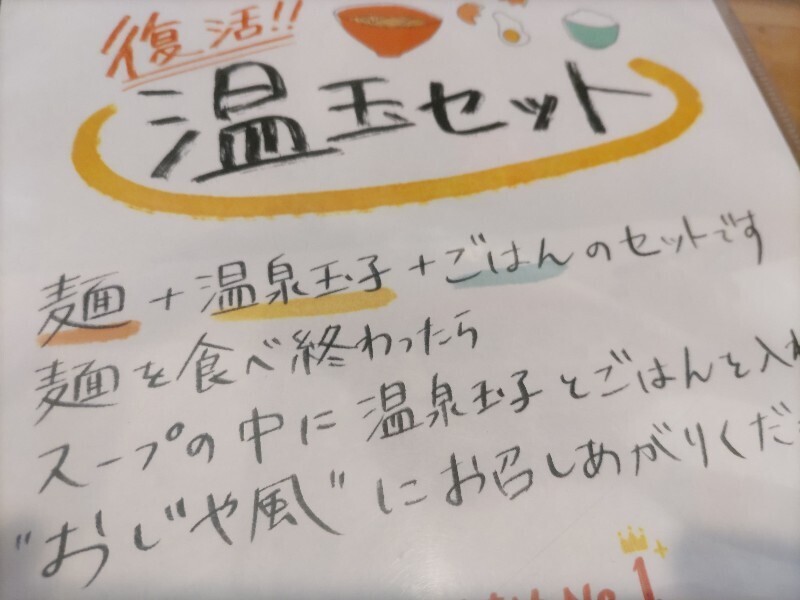 復活!!
温玉セット
麺+温泉玉子+ごはんのセットです
麺を食べ終わったら
スープの中に温泉玉子とごはんを入
"おじや風"にお召しあがりくだ
No.1